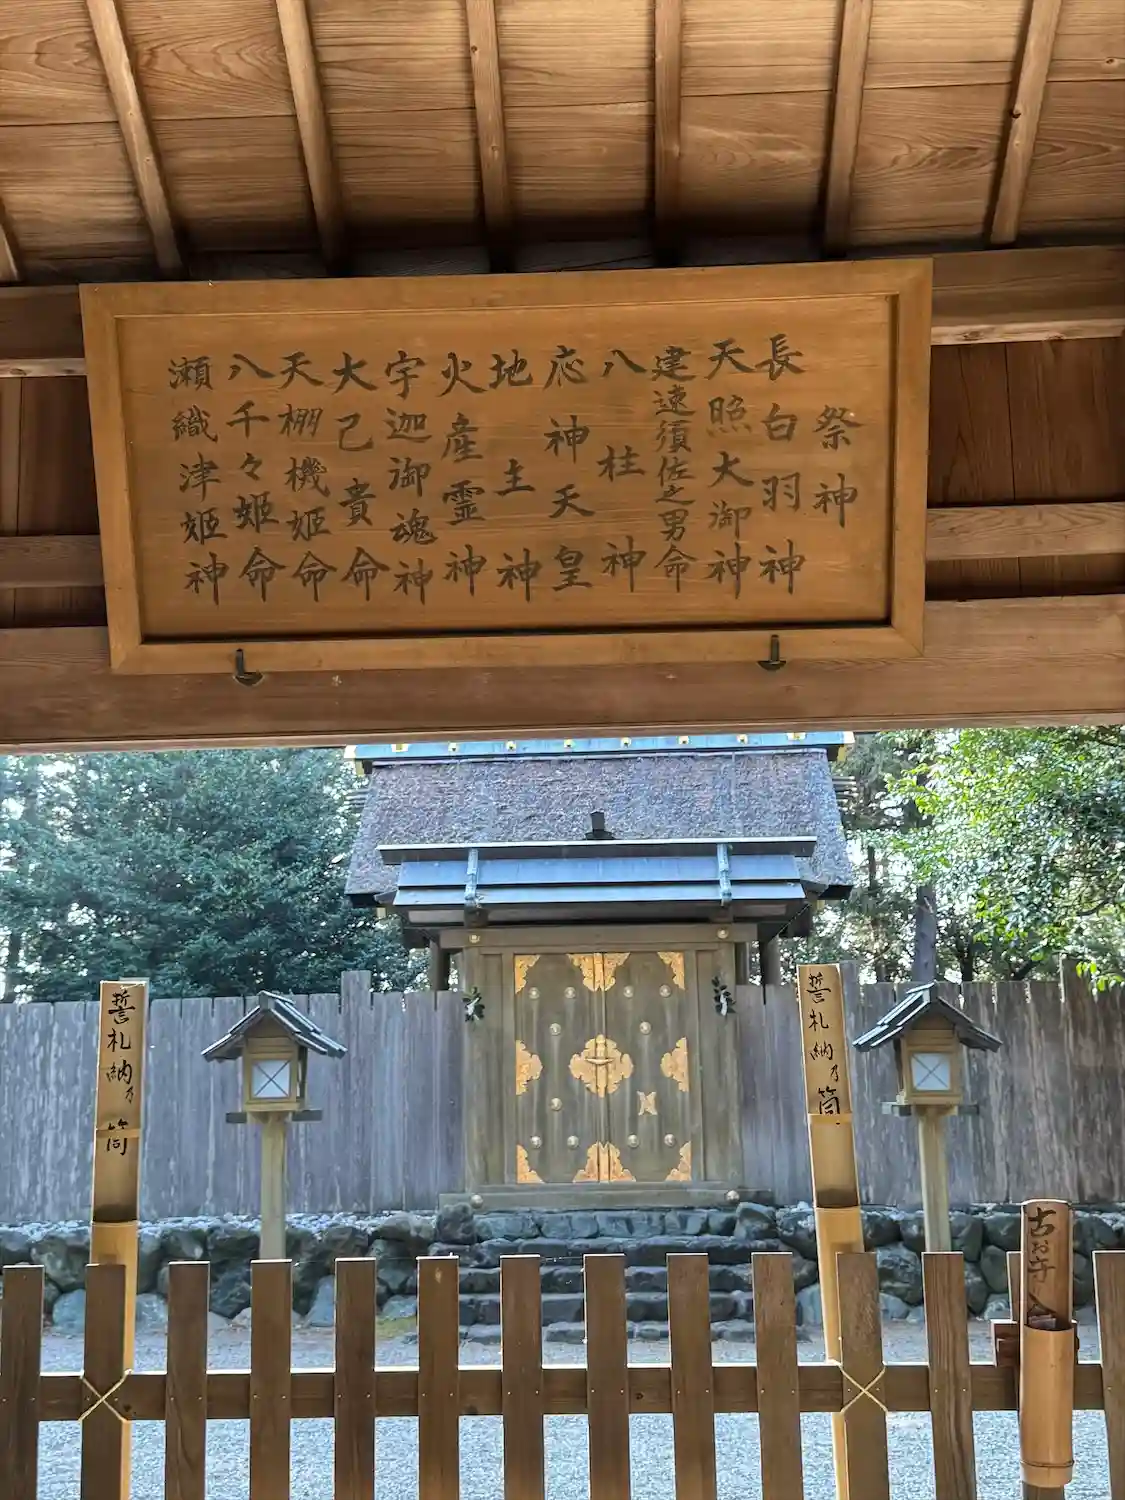 祭神
長白羽神
天照大御神
建速須佐之男命
八柱神
応神天皇
地主神
火産霊神
宇迦御魂神
大己貴命
天棚機姫命
八千々姫命
瀬織津姫神
誓札納乃筒
誓札納乃筒
古お守入